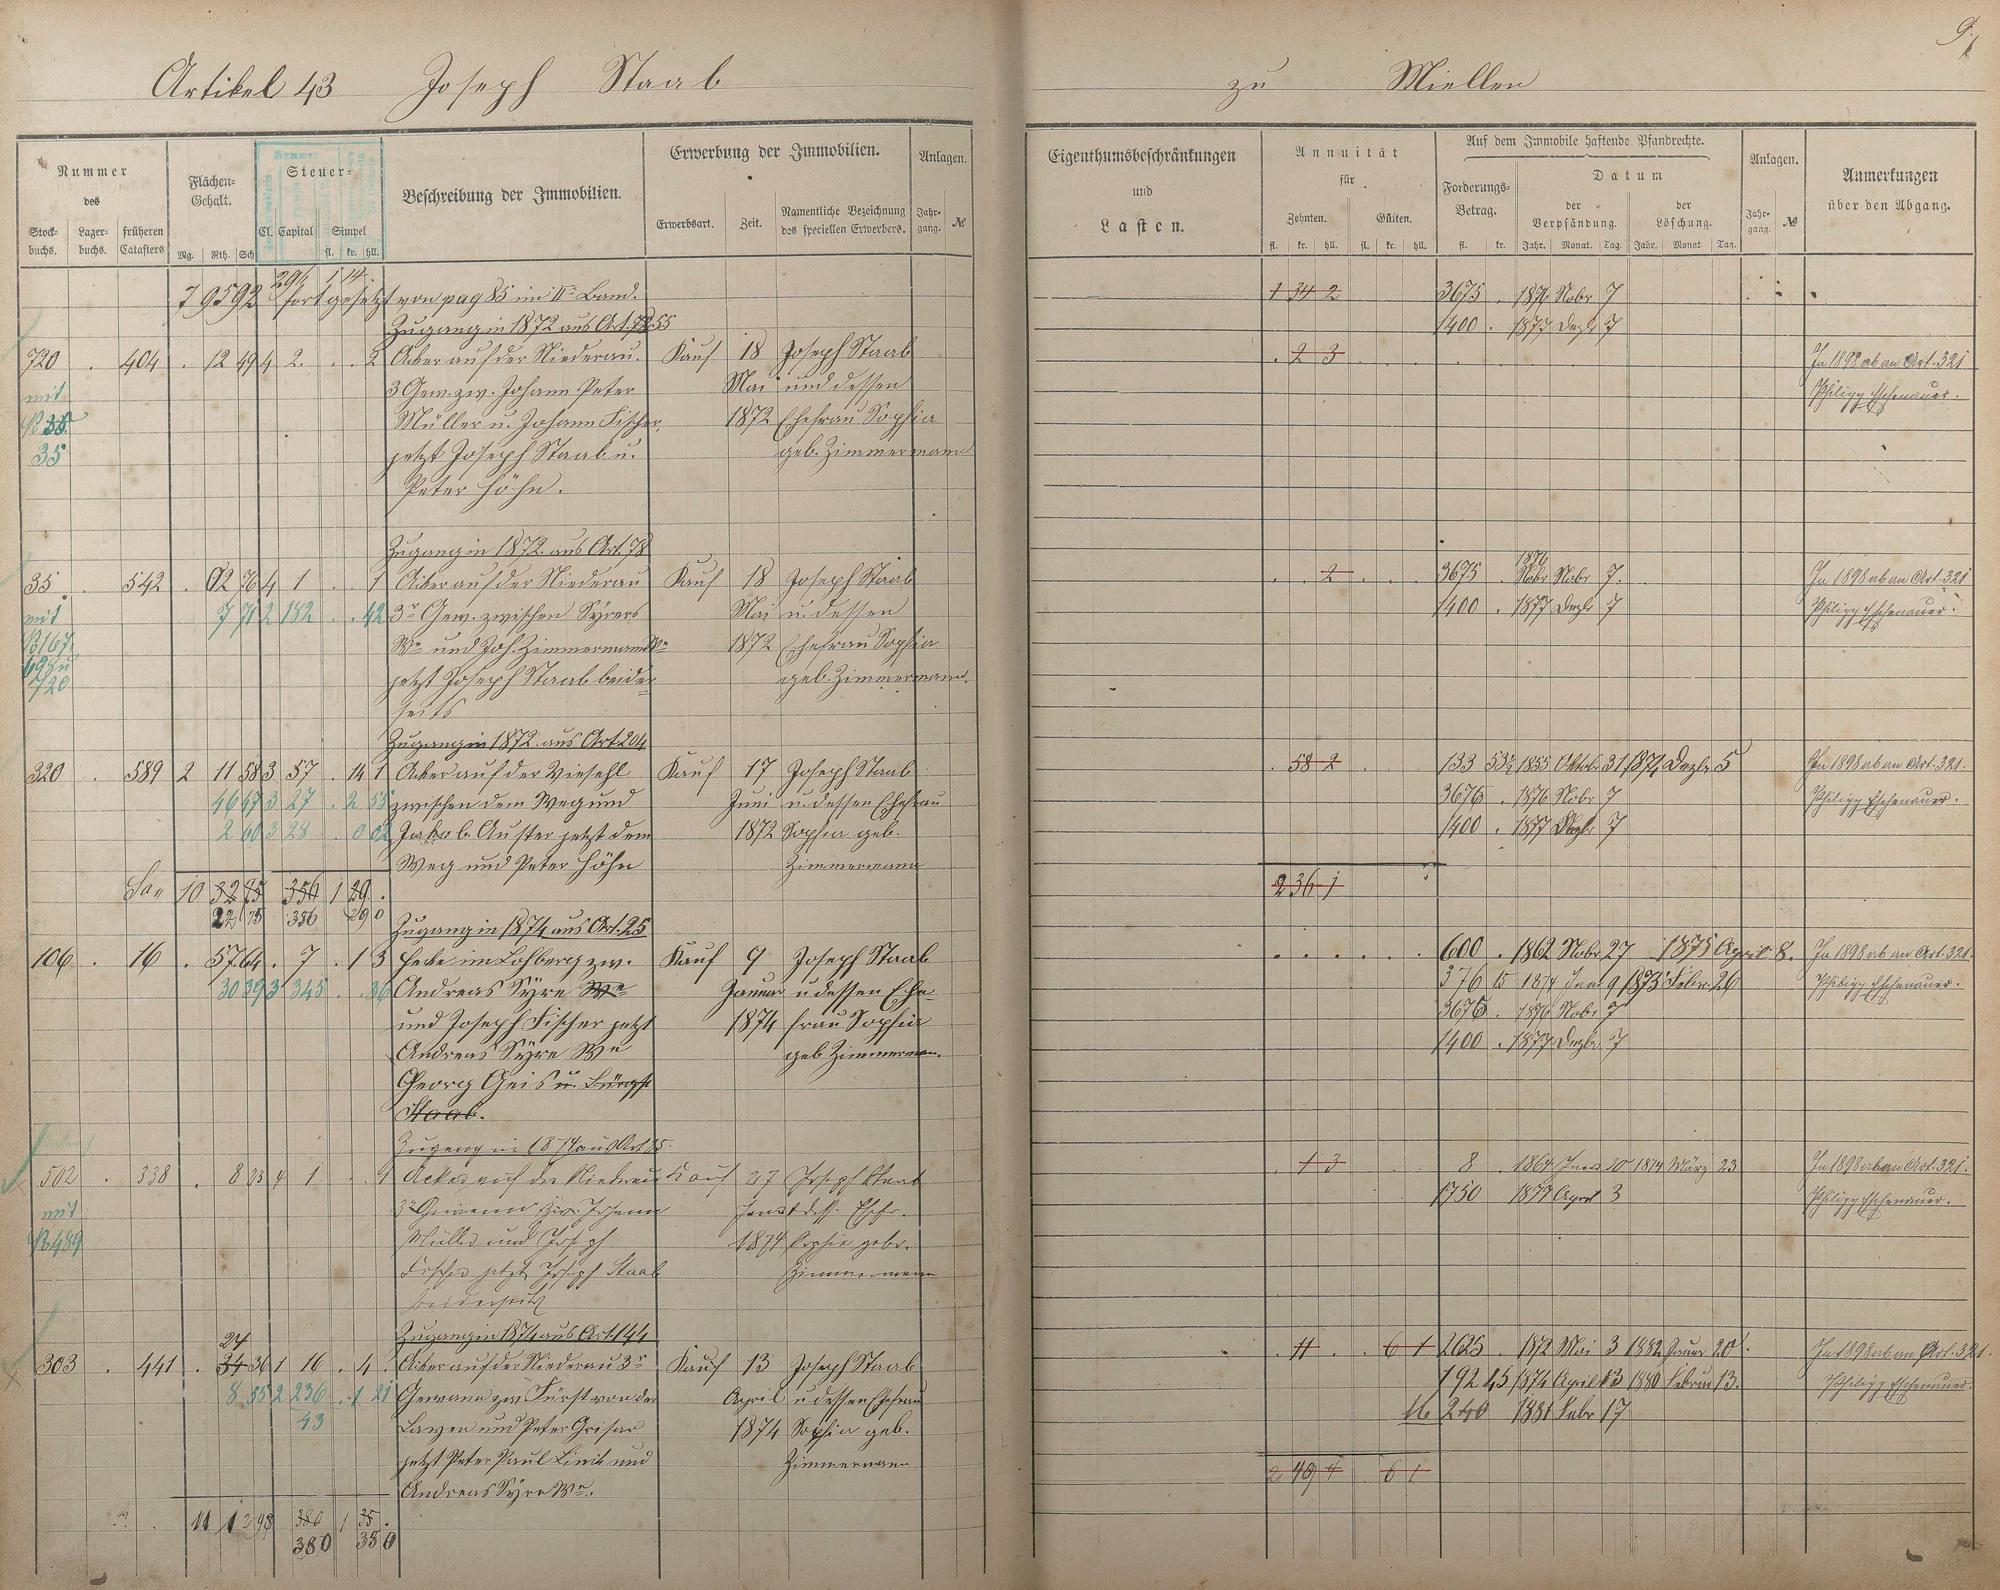 Artikel 43 Joseph Staab
zu Miellen
9
Nummer
des
Stock-
buchs.
Lager-
buchs.
früheren
Catasters
Flächen-
Gehalt.
Mg. Rth. Sch
Steuer-
Cl. Capital Simpel
fl. kr. hll.
Beschreibung der Immobilien.
Erwerbung der Immobilien.
Erwerbsart. Zeit.
Namentliche Bezeichnung
des speciellen Erwerbers.
Anlagen.
Jahr-
gang. №
Eigenthumsbeschränkungen
und
Lasten.
Annuität
für
Zehnten. Gülten.
fl. kr. hll. fl. kr. hll.
Auf dem Immobile haftende Pfandrechte.
Forderungs-
Betrag.
fl. kr.
Datum
der
Verpfändung.
Jahr. Monat. Tag.
der
Löschung.
Jahr. Monat Tag.
Anlagen.
Jahr-
gang. №
Anmerkungen
über den Abgang.
7 95 92 291 1 14 fortgesetzt von pag 85 im IIr Band.
1 34 2 3675 . 1876 Nobr 7
Zugang in 1872 aus Art. 55
1400 . 1877 Dezbr 7
720 . 404 . 12 49 4 2 . . 2 Acker auf der Niederau. Kauf 18 Joseph Staab
. 2 3
In 1898 ab an Art. 321
mit 3 Gew. zw. Johann Peter Mai und dessen
Philipp Eschenauer.
35 Müller u. Johann Fischer, 1872 Ehefrau Sophia
35 jetzt Joseph Staab u. geb. Zimmermann
Peter Höhn.
Zugang in 1872 aus Art. 78
35 . 542 . 02 76 4 1 . . 1 Acker auf der Niederau Kauf 18 Joseph Staab
. 2 3675 . 1876 Nobr 7.
In 1898 ab an Art. 321
mit 7 71 2 182 . . 42 3r Gew. zwischen Syrers Mai u. dessen
1400 . 1877 Dezbr 7
Philipp Eschenauer.
167 We und Joh. Zimmermann We 1872 Ehefrau Sophia
720 jetzt Joseph Staab beider geb. Zimmermann.
seits
Zugang in 1872 aus Art 204
320 . 589 2 11 58 3 57 . 14 1 Acker auf der Kauf 17 Joseph Staab
. 58 2 133 53½ 1855 Oktbr 31 1874 Dezbr 5
In 1898 ab an Art. 321.
46 47 3 27 . 2 55 zwischen dem Weg und Juni u. dessen Ehefrau
3675 . 1876 Nobr 7
Philipp Eschenauer.
2 60 3 28 . 0 02 Jakob Auster jetzt dem 1872 Sophia geb.
1400 . 1877 Dezbr 7
Weg und Peter Höhn Zimmermann
Sa 10 32 75 350 1 29 .
2 36 1
22 75 356 290
Zugang in 1874 aus Art. 25
106 . 16 . 57 64 . 7 . 1 3 Hecke im Lohberg zw. Kauf 9 Joseph Staab
600 . 1862 Nobr 27 1875 April 8.
In 1898 ab an Art. 321.
30 39 3 345 . . 36 Andreas Syre We Januar u dessen Ehe-
376 15 1874 Jan 9 1875 Febr. 26
Philipp Eschenauer.
und Joseph Fischer jetzt 1874 frau Sophia
3675 . 1876 Nobr 7
Andreas Syre We geb Zimmerman.
1400 . 1877 Dezbr. 7
Georg Geis u.
Staab.
Zugang in 1874 aus Art
502 . 338 . 8 4 1 . . 1 Acker auf der Niederau Kauf 27 Joseph Staab
. 1 3 8 . 1864 30 1874 März 23
In 1898 ab an Art. 321.
mit 3 Gewann zw. Johann u dess. Ehefr.
1750 . 1877 April 3
Philipp Eschenauer.
489 Müller und Joseph 1874 Sophia gebr.
Fischer jetzt Joseph Staab Zimmermann
beiderseits
Zugang in 1874 aus Art. 144
24
303 . 441 . 34 36 1 16 . 4 . Acker auf der Niederau 3r Kauf 13 Joseph Staab
. 11 . . 6 1 2625 . 1872 Mai 3 1882 Januar 20
In 1898 ab an Art. 321.
8 55 2 236 . 1 21 Gewann zw Fürst von der April u dessen Ehefrau
192 45 1874 April 13 1880 Februar 13.
Philipp Eschenauer.
43 Layen und Peter Grisar 1874 Sophia geb.
M 240 1881 Febr 17
jetzt Peter Paul Linck und Zimmermann
Andreas Syre We.
2 49 1 6 1
11 1 98 380 1 35 .
380 350